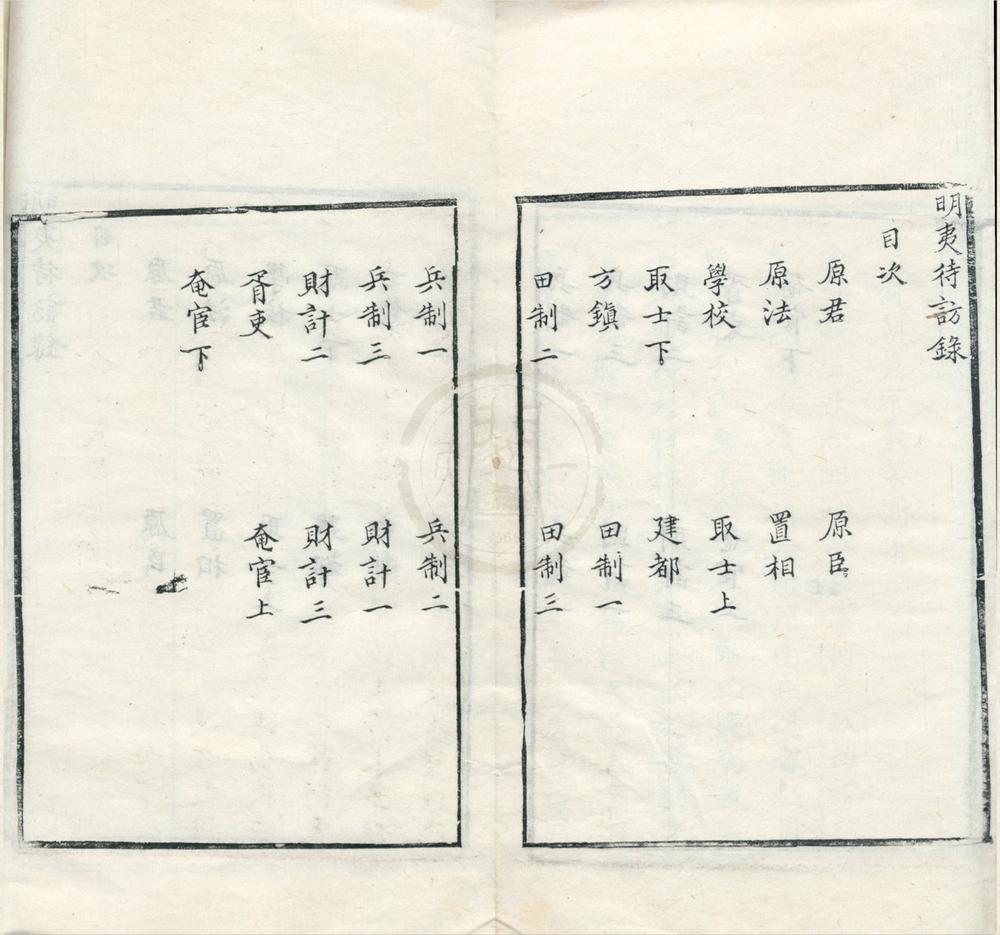 明夷待訪錄
目次
原君 原臣
原法 置相
學校 取士上
取士下 建都
方鎮 田制一
田制二 田制三
兵制一 兵制二
兵制三 財計一
財計二 財計三
胥吏 奄宦上
奄宦下